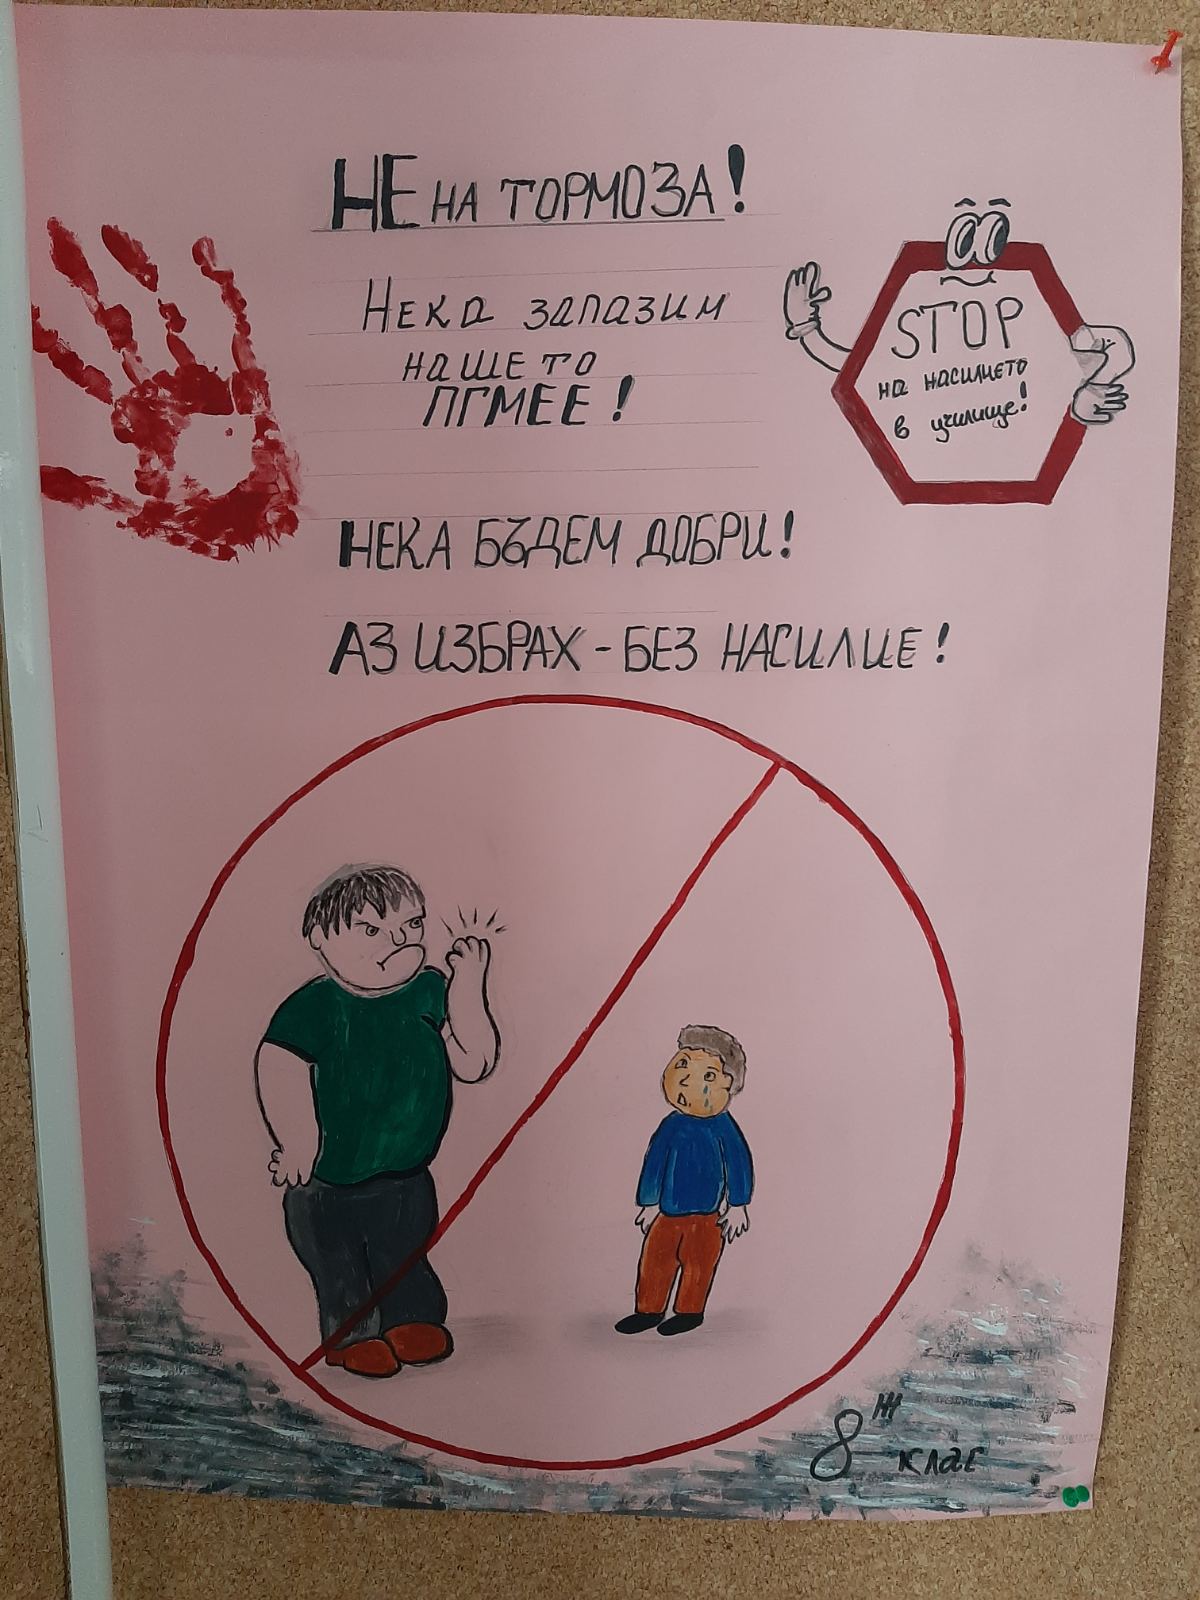 НЕ НА ТОРМОЗА!
Нека запазим
нашето
ПГМЕЕ!
STOP
на насилието
в училище!
НЕКА БЪДЕМ ДОБРИ!
АЗ ИЗБРАХ - БЕЗ НАСИЛИЕ!
8 Ж клас